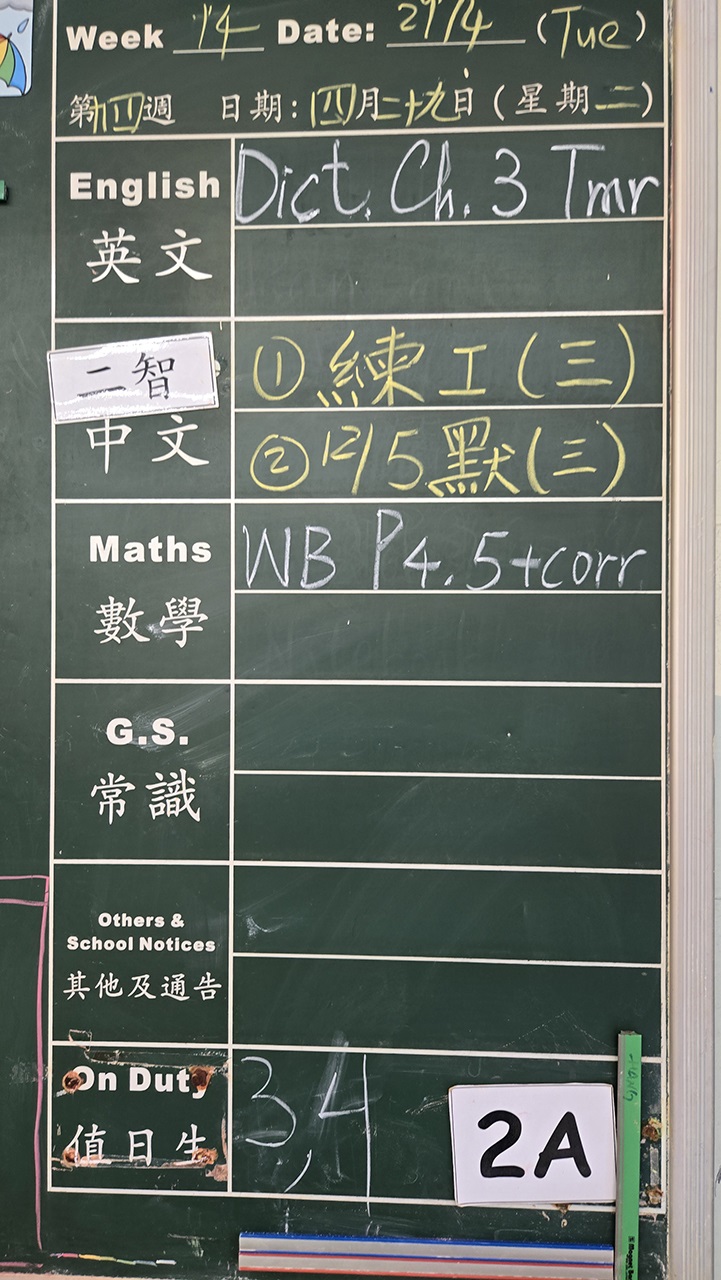 Week 14 Date: 29/4 (Tue)
第十四週 日期:四月二十九日(星期二)
English Dict. Ch. 3 Tmr
英文
二智 ① 練工(三)
中文 ② 12/5 默(三)
Maths WB P4.5+corr
數學
G.S.
常識
Others &
School Notices
其他及通告
On Duty 3,4
值日生
2A